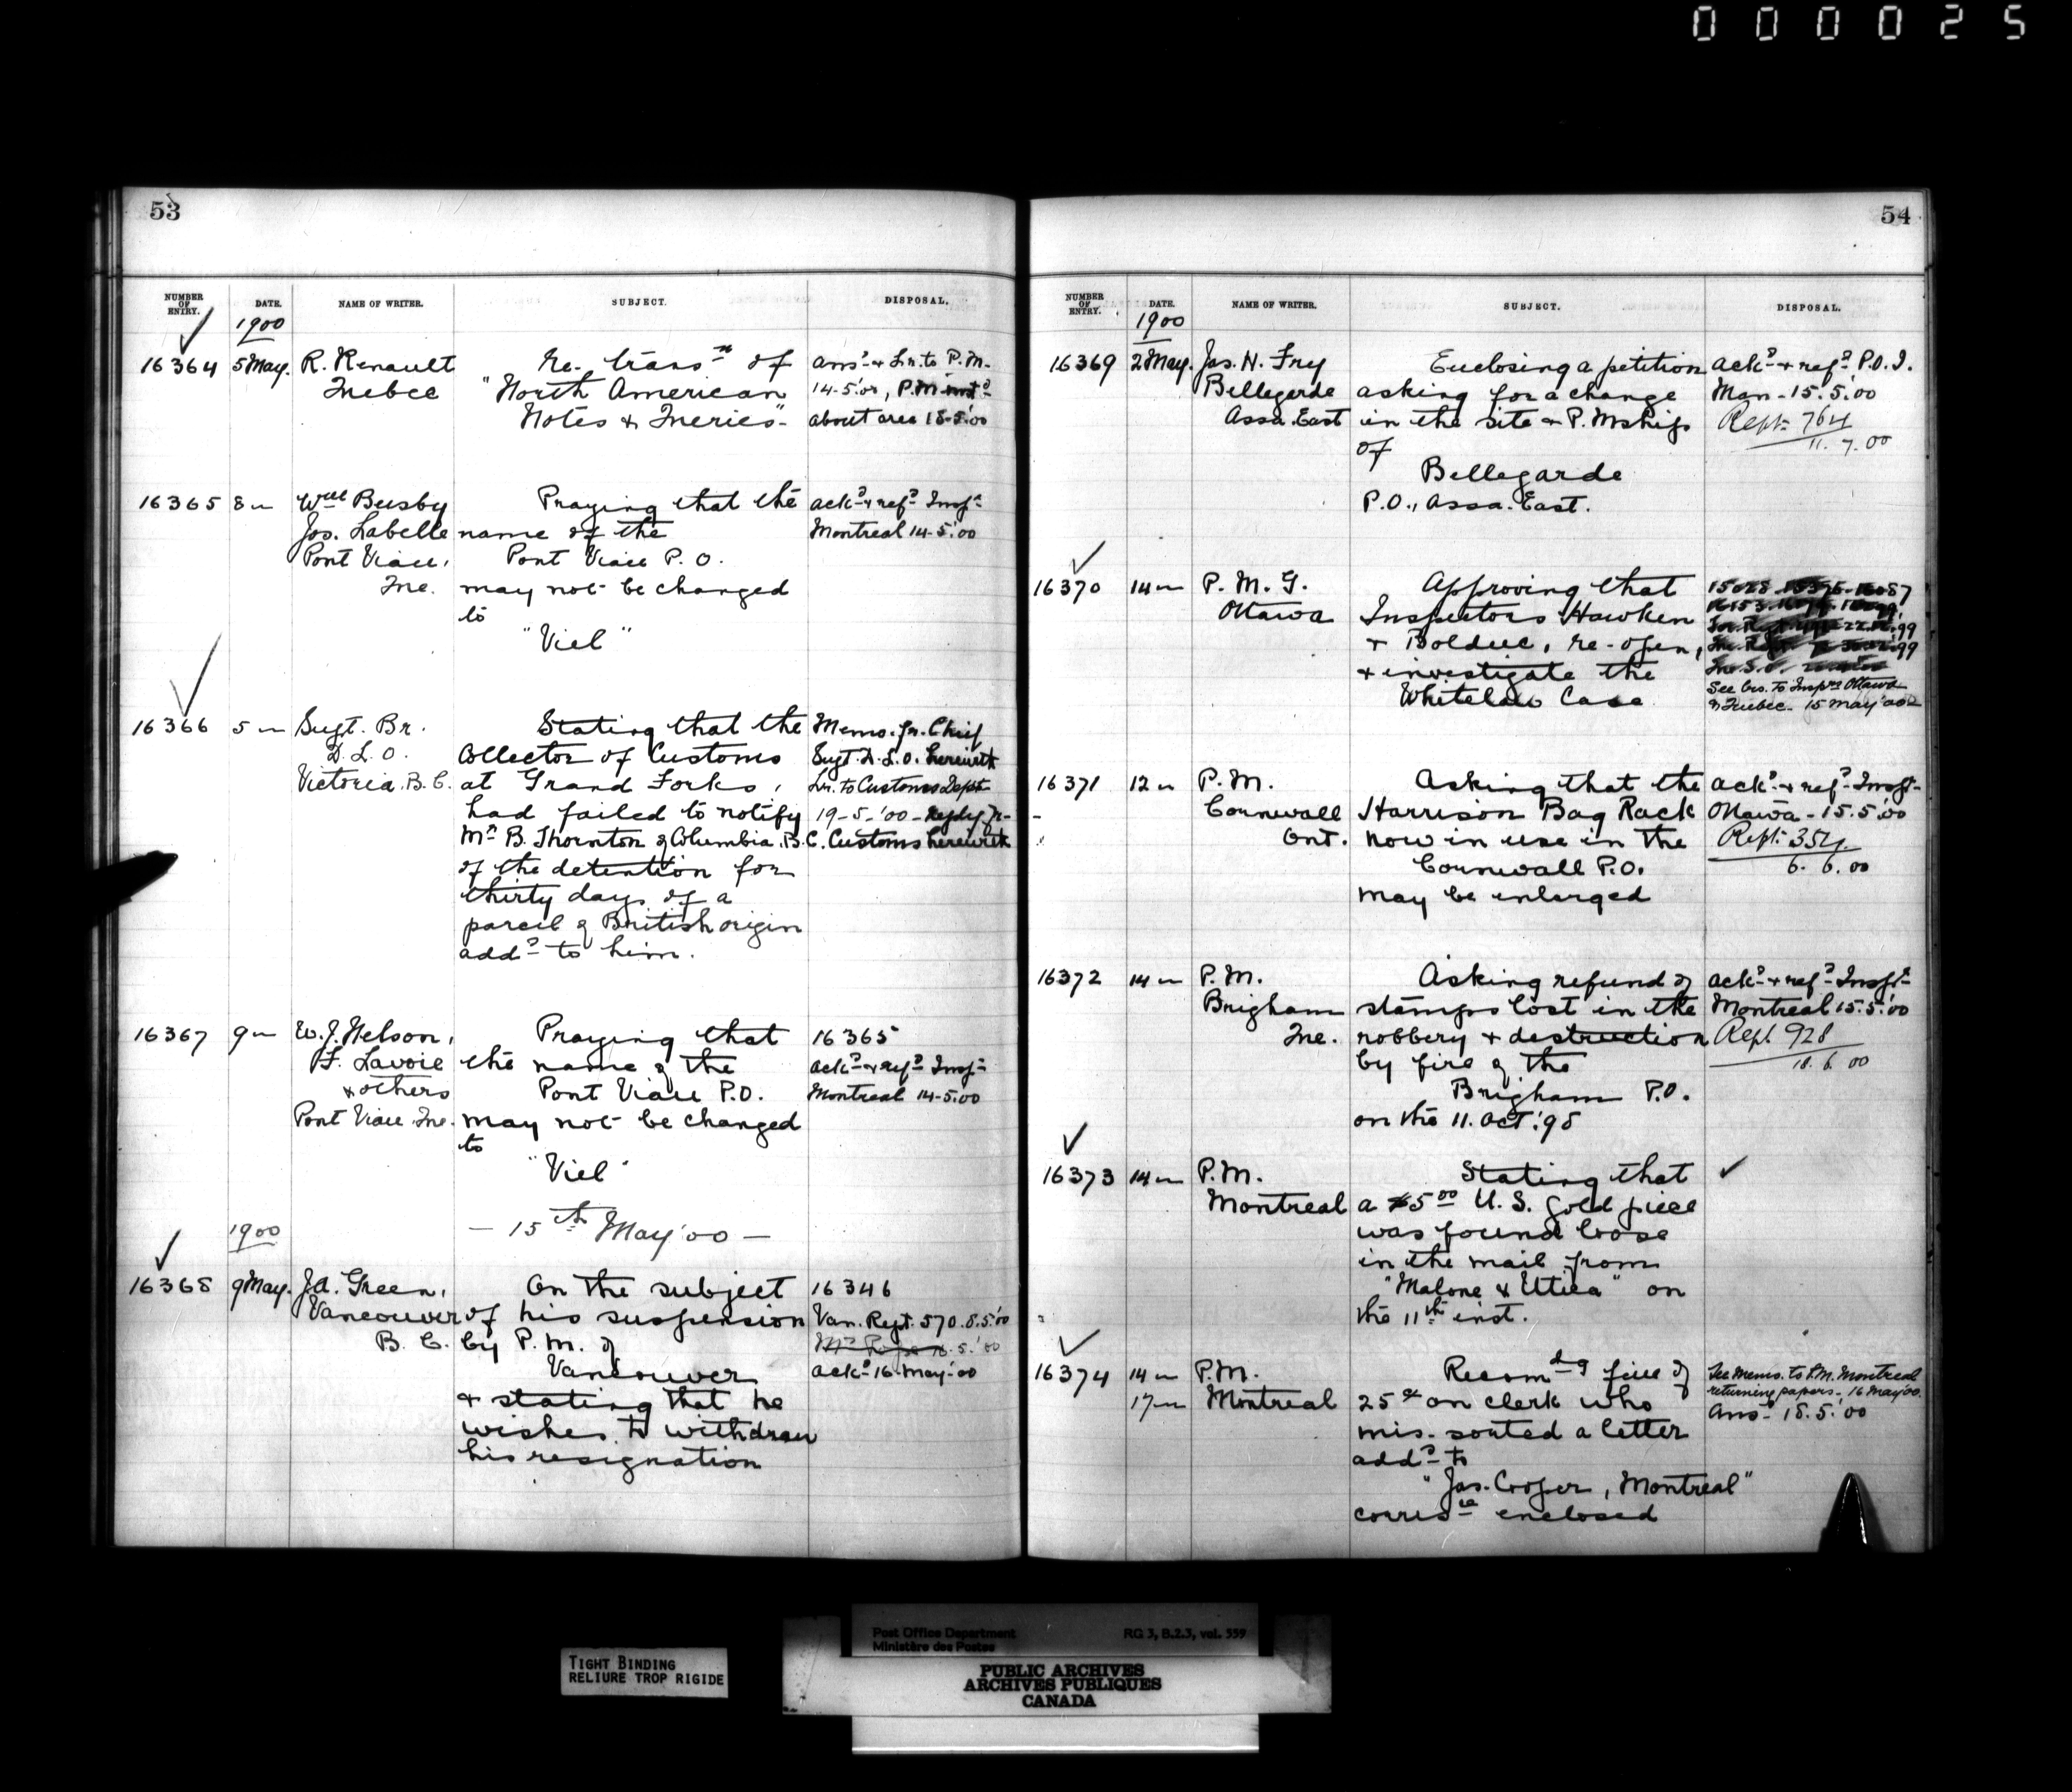 000025
53
NUMBER OF ENTRY. DATE. NAME OF WRITER. SUBJECT. DISPOSAL.
1900
16364 5 May. R. Renault Re- trans:n of Ans:d & Lr. to P.M.
Quebec "North American 14-5.'00, P.M.
Notes & Queries" about ans 18-5.'00
16365 8 " Wm Busby Praying that the ack:d & ref:d Insp:r
Jos. Labelle name of the Montreal 14-5.'00
Pont Viau, Pont Viau P.O.
Que. may not be changed
to
"Viel"
16366 5 " Supt. Br. Stating that the Memo. fr. Chief
D.L.O. Collector of Customs Supt. D.L.O. herewith
Victoria, B.C. at Grand Forks, Lr. to Customs Dept.
had failed to notify 19-5-'00 - Reply fr-
Mr. B. Thornton of Columbia, B.C. Customs herewith
of the detention for
thirty days of a
parcel of British origin
add:d to him.
16367 9 " W.J. Nelson, Praying that 16365
F. Lavoie the name of the ack:d & ref:d Insp:r
& others Pont Viau P.O. Montreal 14-5.00
Pont Viau Que. may not be changed
to
"Viel"
1900 - 15th May '00 -
16368 9 May. J.A. Green, On the subject 16346
Vancouver of his suspension Van. Rept. 570. 8.5.'00
B.C. by P.M. of
Vancouver ack:d 16 May-'00
& stating that he
wishes to withdraw
his resignation
54
NUMBER OF ENTRY. DATE. NAME OF WRITER. SUBJECT. DISPOSAL.
1900
16369 2 May. Jas. H. Fry Enclosing a petition ack:d & ref:d P.O.I.
Bellegarde asking for a change Man - 15.5.'00
Assa. East in the site & P.Mship Rept. 764
of 11. 7. 00
Bellegarde
P.O., Assa. East.
16370 14 " P.M.G. Approving that
Ottawa Inspectors Hawken
& Bolduc, re-open,
& investigate the
Whitelaw Case See Lrs. to Insp:rs Ottawa
& Quebec - 15 May '00
16371 12 " P.M. Asking that the ack:d & ref:d Insp:r
Cornwall Harrison Bag Rack Ottawa - 15.5.'00
Ont. now in use in the Rept. 354
Cornwall P.O. 6. 6. 00
may be enlarged
16372 14 " P.M. Asking refund of ack:d & ref:d Insp:r
Brigham stamps lost in the Montreal 15.5.'00
Que. robbery & destruction Rept. 928
by fire of the 18. 6. 00
Brigham P.O.
on the 11. Oct. '98
16373 14 " P.M. Stating that
Montreal a $5.00 U.S. gold piece
was found loose
in the mail from
"Malone & Utica" on
the 11th inst.
16374 14 " P.M. Recom:dg fine of See Memo. to P.M. Montreal
17 " Montreal 25¢ on clerk who returning papers - 16 May '00.
mis-sorted a letter Ans:d 18.5.'00
add:d to
"Jas. Cooper, Montreal"
corres:ce enclosed
Post Office Department RG 3, B.2.3, vol. 559
Ministère des Postes
TIGHT BINDING
RELIURE TROP RIGIDE
PUBLIC ARCHIVES
ARCHIVES PUBLIQUES
CANADA